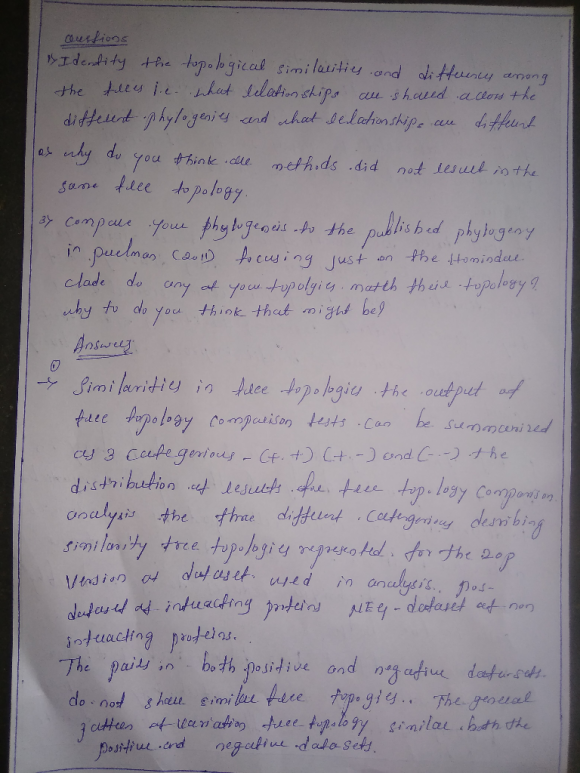 Questions
1) Identify the topological similarities and differences among
the trees i.e. what relationships are shared across the
different phylogenies and what relationships are different
2) why do you think the methods did not result in the
same tree topology.
3) compare your phylogeneis to the published phylogeny
in puelman (2011) focusing just on the Hominidae
clade do any of your topolgies match their topology?
why to do you think that might be?
Answers
①
→ Similarities in tree topologies the output of
tree topology comparison tests can be summarized
as 3 categerious - (+ +) (+ -) and (- -) the
distribution of results for tree topology comparison
analysis the three different categerious desribing
similarity tree topologies represented for the 20p
version of dataset used in analysis. pos-
dataset of interacting proteins NEG - dataset of non
interacting proteins.
The pairs in both positive and negative data sets
do not share similar tree topogies.. The general
pattern of variation tree topology similar both the
positive and negative datasets.